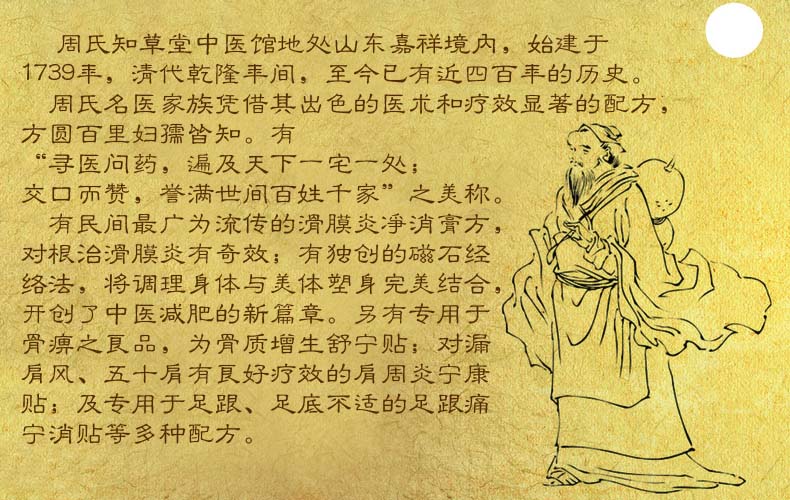 周氏知草堂中医馆地处山东嘉祥境内，始建于
1739年，清代乾隆年间，至今已有近四百年的历史。
周氏名医家族凭借其出色的医术和疗效显著的配方，
方圆百里妇孺皆知。有
“寻医问药，遍及天下一宅一处；
交口而赞，誉满世间百姓千家”之美称。
有民间最广为流传的滑膜炎净消膏方，
对根治滑膜炎有奇效；有独创的磁石经
络法，将调理身体与美体塑身完美结合，
开创了中医减肥的新篇章。另有专用于
骨痹之良品，为骨质增生舒宁贴；对漏
肩风、五十肩有良好疗效的肩周炎宁康
贴；及专用于足跟、足底不适的足跟痛
宁消贴等多种配方。